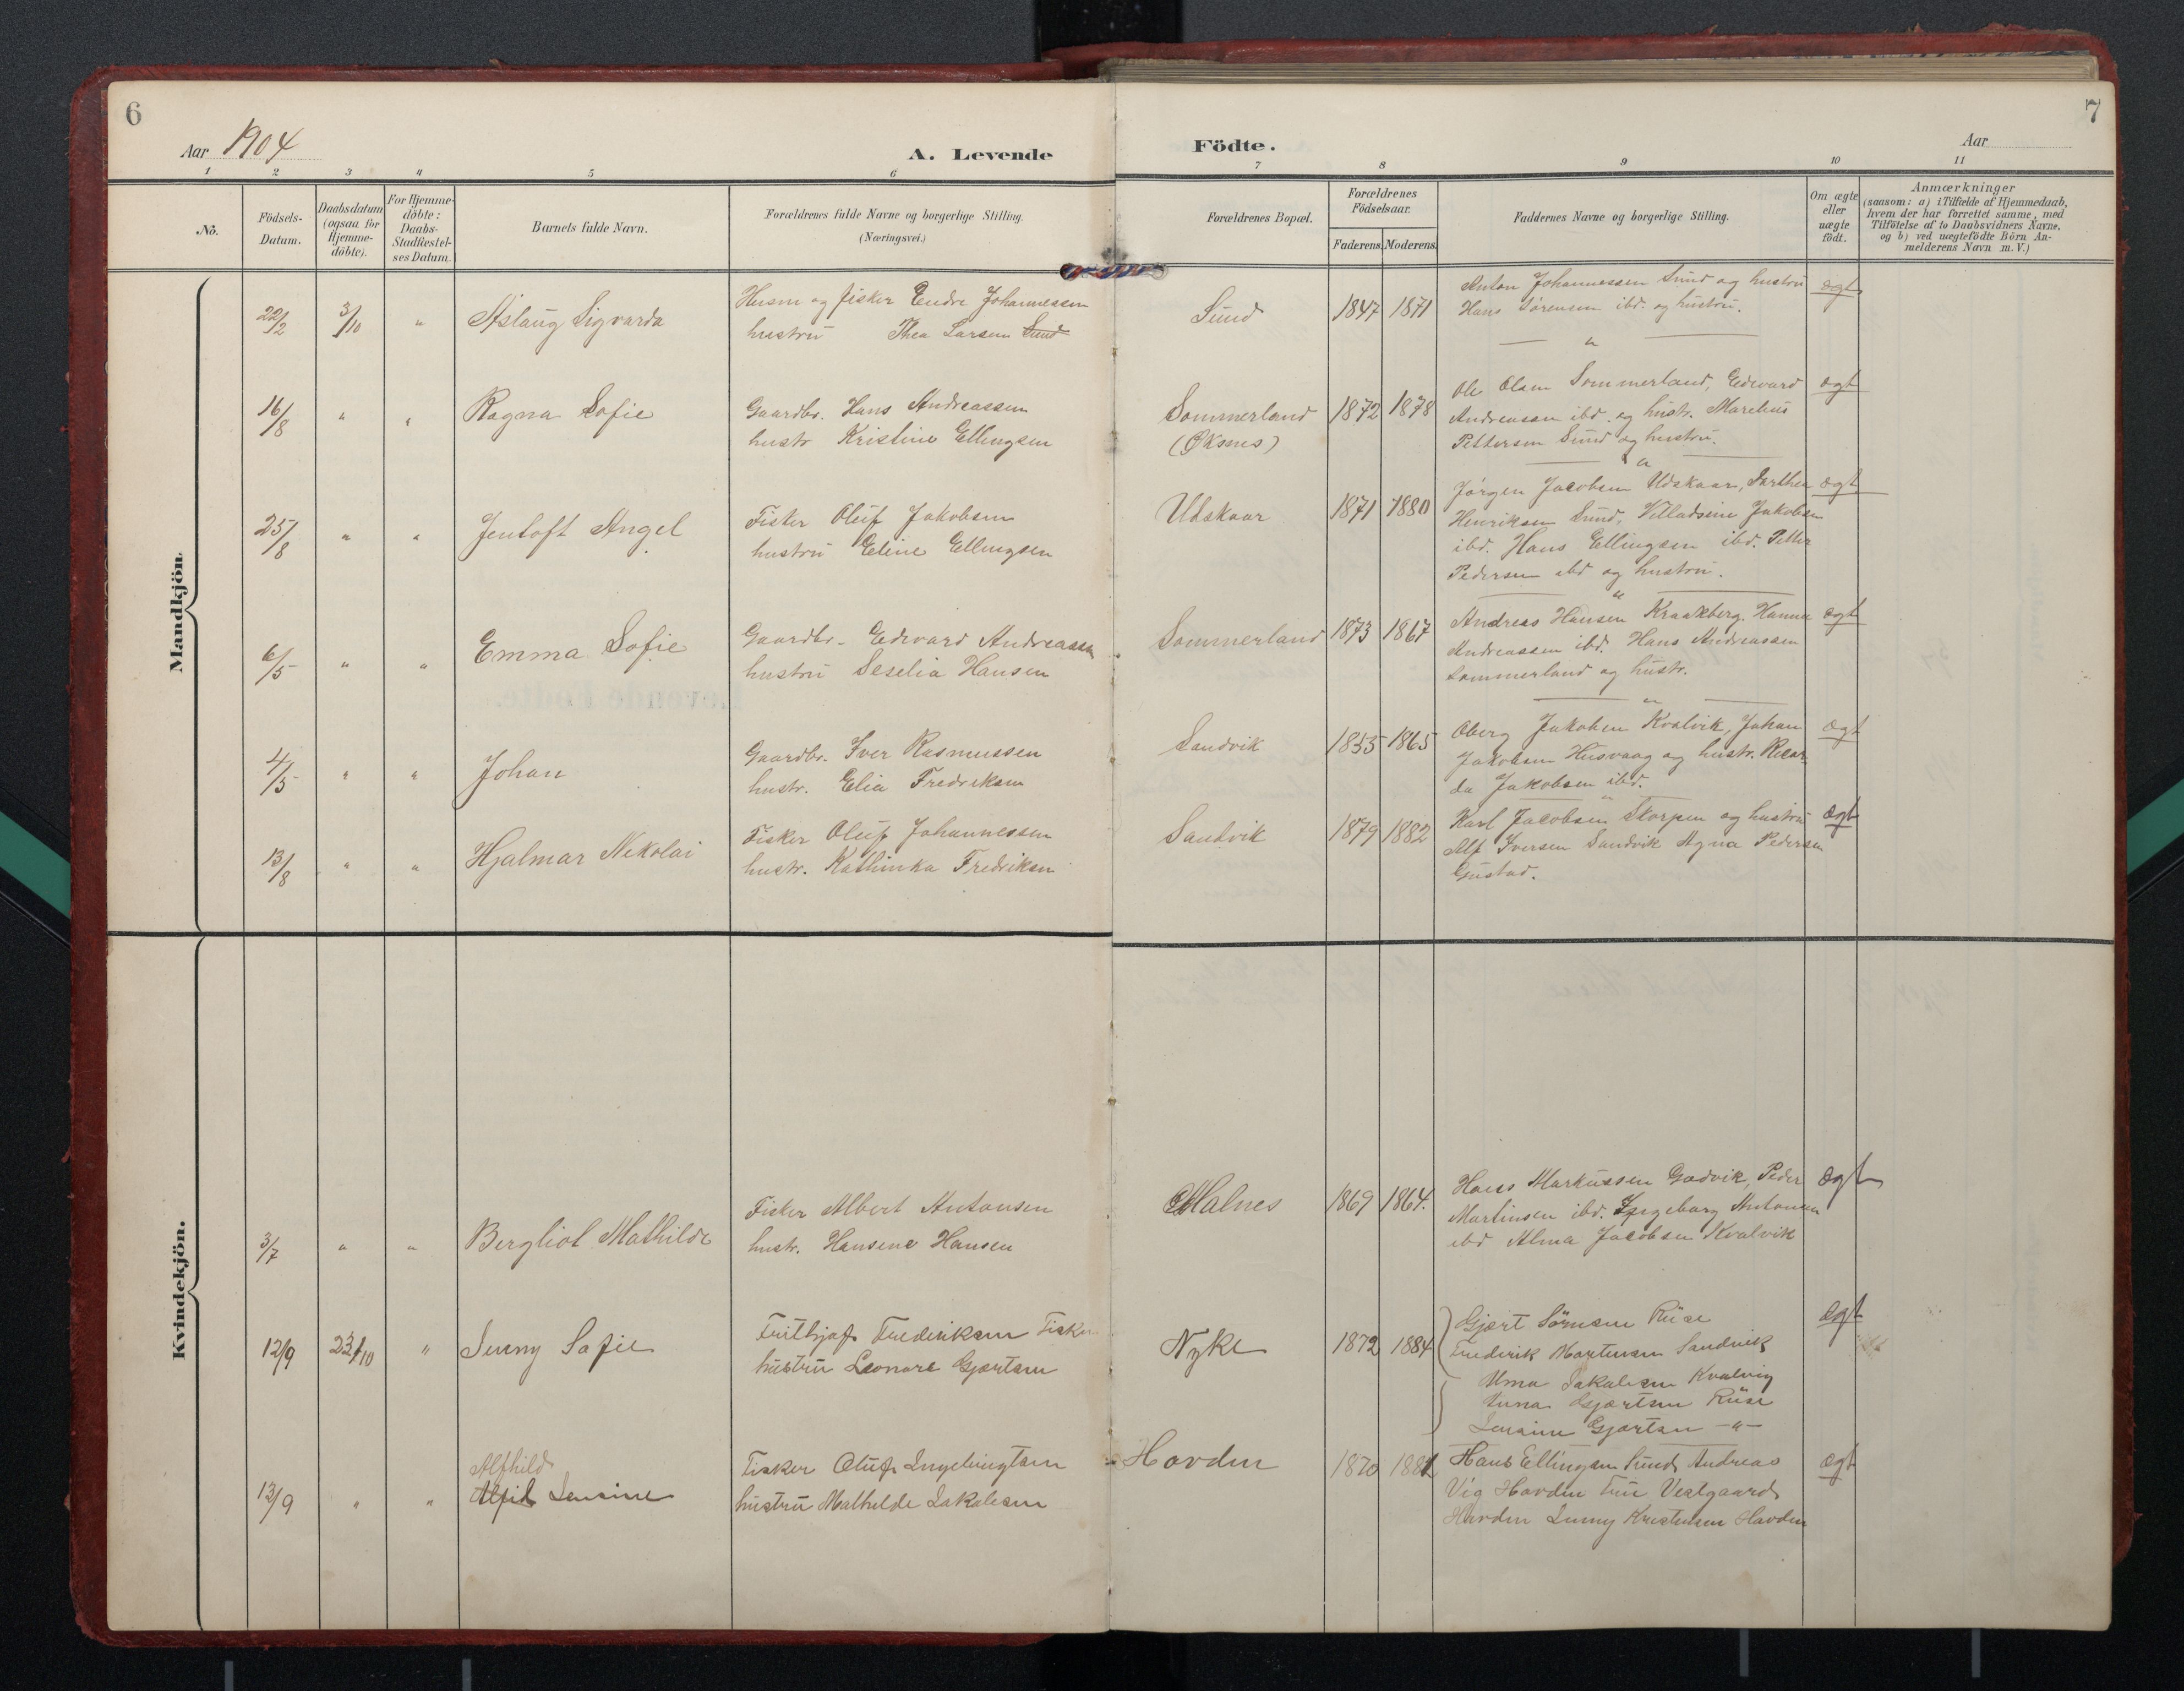 6
7
Aar 1904
A. Levende
Födte.
Aar
1 2 3 4 5 6 7 8 9 10 11
No.
Födsels-
Datum.
Daabsdatum
(ogsaa for
Hjemme-
döbte).
For Hjemme-
döbte:
Daabs-
Stadfæstel-
ses Datum.
Barnets fulde Navn.
Forældrenes fulde Navne og borgerlige Stilling.
(Næringsvei.)
Forældrenes Bopæl.
Forældrenes
Födselsaar.
Faderens. Moderens.
Faddernes Navne og borgerlige Stilling.
Om ægte
eller
uægte
födt.
Anmærkninger
(saasom: a) i Tilfælde af Hjemmedaab,
hvem der har forrettet samme, med
Tilföielse af to Daabsvidners Navne,
og b) ved uægtefödte Börn An-
melderens Navn m. V.)
Mandkjön.
22/2 3/10 " Aslaug Sigvarda
Husm og fisker Endre Johannessen
hustru Thea Larsen Sund
Sund 1847 1871
Anton Johannessen Sund og hustru
Hans Sörensen ibd. og hustru.
"
ægt
16/8 " " Ragna Sofie
Gaardbr. Hans Andreassen
hustr Kristine Ellingsen
Sommerland
(Øksnes)
1872 1878
Ole Olsen Sommerland, Edevard
Andreassen ibd. og hustr. Marelius
Pettersen Sund og hustru.
"
ægt
25/8 " " Jentoft Angel
Fisker Oluf Jakobsen
hustru Eline Ellingsen
Udskaar 1871 1880
Jörgen Jacobsen Udskaar, Darthea
Henriksen Sund, Villadsine Jakobsen
ibd. Hans Ellingsen ibd. Petter
Pedersen ibd og hustru.
"
ægt
6/5 " " Emma Sofie
Gaardbr. Edevard Andreassen
hustru Seselia Hansen
Sommerland 1873 1867
Andreas Hansen Kraakberg. Hanna
Andreassen ibd. Hans Andreassen
Sommerland og hustr.
"
ægt
4/5 " " Johan
Gaardbr. Iver Rasmussen
hustr. Elia Fredriksen
Sandvik 1855 1865
Oberg Jakobsen Kvalvik, Johan
Jakobsen Husvaag og hustr. Ricar-
da Jakobsen ibd.
"
ægt
13/8 " " Hjalmar Nekolai
Fisker Oluf Johannessen
hustr. Kathinka Fredriksen
Sandvik 1879 1882
Karl Jacobsen Skorpen og hustru
Alf Iversen Sandvik Agna Pedersen
Gustad.
ægt
Kvindekjön.
3/7 " " Bergliot Mathilde
Fisker Albert Antonsen
hustr. Hansene Hansen
Malnes 1869 1864.
Hans Markussen Gadvik, Peder
Martinsen ibd. Ingeborg Antonsen
ibd Alma Jacobsen Kvalvik
ægt
12/9 23/10 " Jenny Sofie
Frithjof Frederiksen Fisker
hustru Leonore Gjærtsen
Nyke 1872 1884
Gjært Sörensen Rüse
Frederik Mortensen Sandvik
Alma Jakobsen Kvalvig
Anna Gjærtsen Rüse
Jensine Gjærtsen - " -
ægt
Alfhild
13/9 " " Alfild Jensine
Fisker Oluf Ingebrigtsen
hustru Mathilde Jakobsen
Hovden 1870 1882
Hans Ellingsen Sund, Andreas
Vig Hovden Trine Vestgaard
Hovden Jenny Kristensen Hovden
ægt